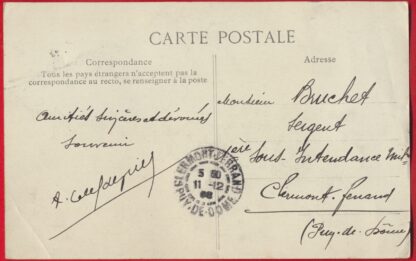 CARTE POSTALE
Correspondance
Tous les pays étrangers n'acceptent pas la
correspondance au recto, se renseigner à la poste
Amitiés sincères et dévouées
Souvenir
Adresse
Monsieur Bruchet
Sergent
Sous-Intendance
Clermont-Ferrand
(Puy-de-Dôme)
CLERMONT-FERRAND
11-12
PUY-DE-DOME